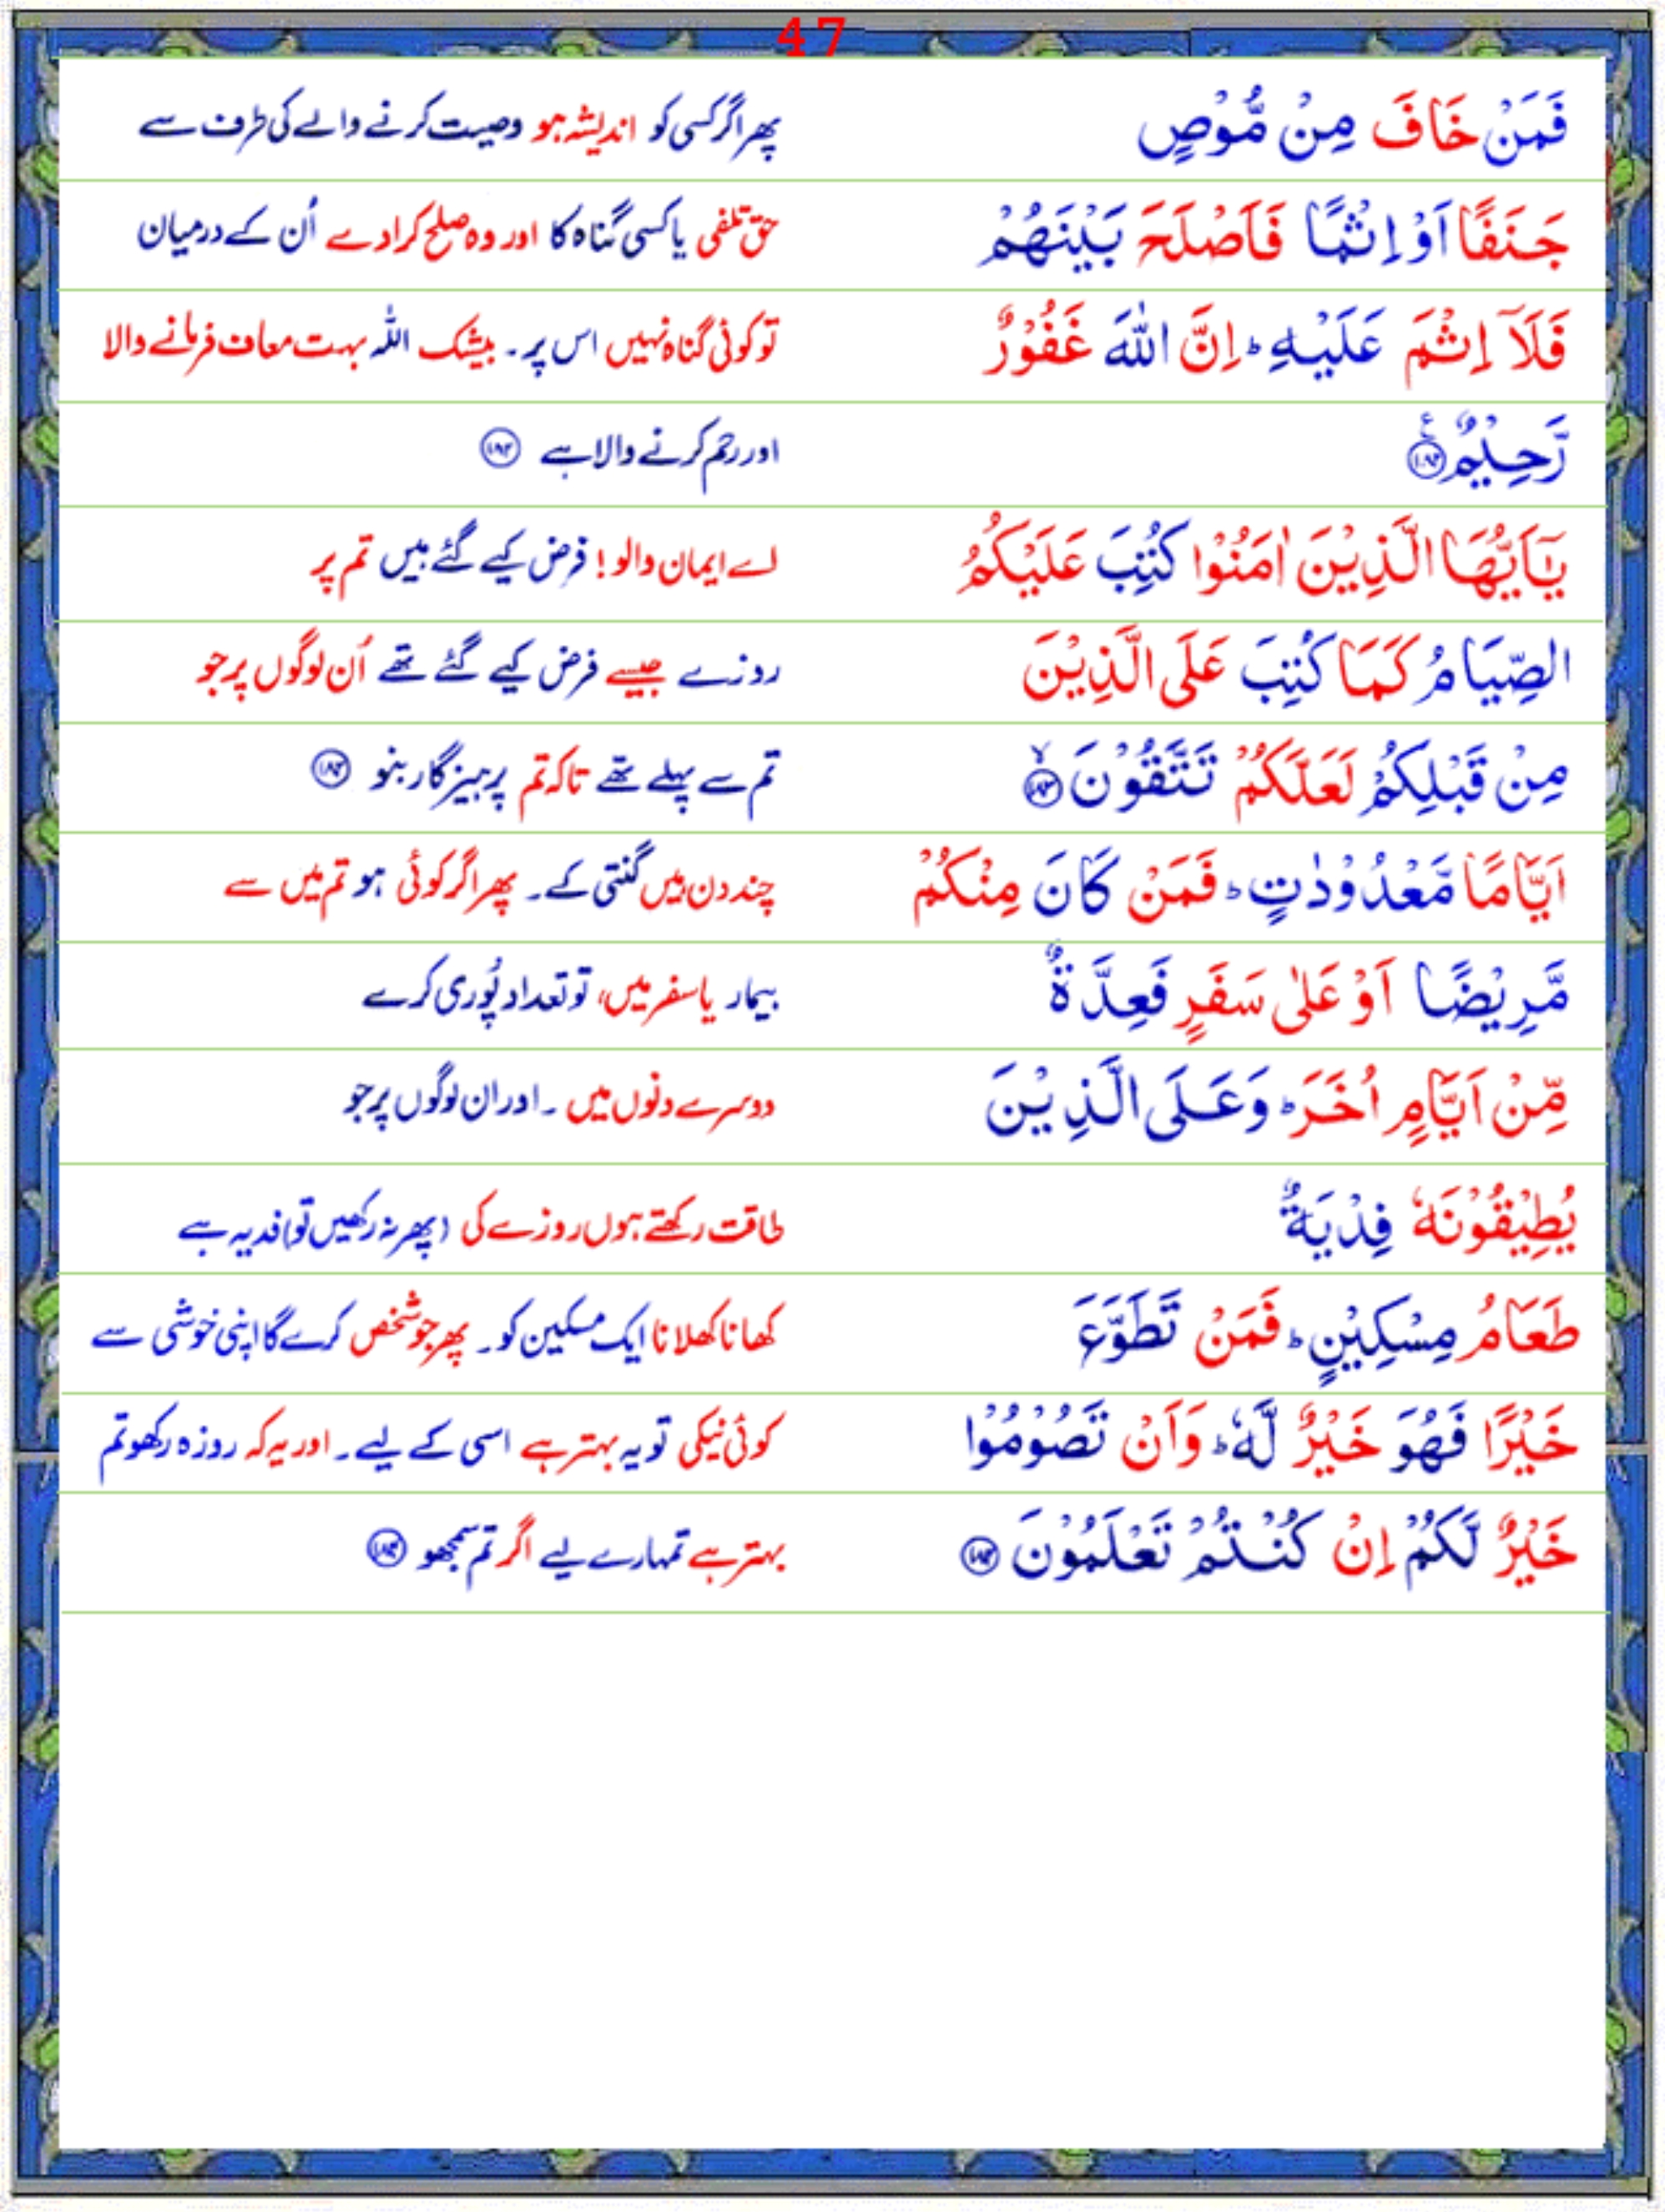 47
فَمَنْ خَافَ مِنْ مُّوْصٍ پھر اگر کسی کو اندیشہ ہو وصیت کرنے والے کی طرف سے
جَنَفًا اَوْ اِثْمًا فَاَصْلَحَ بَيْنَهُمْ حق تلفی یا کسی گناہ کا اور وہ صلح کرا دے اُن کے درمیان
فَلَاۤ اِثْمَ عَلَيْهِ ؕ اِنَّ اللّٰهَ غَفُوْرٌ تو کوئی گناہ نہیں اس پر۔ بیشک اللہ بہت معاف فرمانے والا
رَّحِيْمٌ ۧ اور رحم کرنے والا ہے
يٰۤاَيُّهَا الَّذِيْنَ اٰمَنُوْا كُتِبَ عَلَيْكُمُ اے ایمان والو! فرض کیے گئے ہیں تم پر
الصِّيَامُ كَمَا كُتِبَ عَلَى الَّذِيْنَ روزے جیسے فرض کیے گئے تھے اُن لوگوں پر جو
مِنْ قَبْلِكُمْ لَعَلَّكُمْ تَتَّقُوْنَ ۙ تم سے پہلے تھے تاکہ تم پرہیزگار بنو
اَيَّامًا مَّعْدُوْدٰتٍ ؕ فَمَنْ كَانَ مِنْكُمْ چند دن ہیں گنتی کے۔ پھر اگر کوئی ہو تم میں سے
مَّرِيْضًا اَوْ عَلٰى سَفَرٍ فَعِدَّةٌ بیمار یا سفر میں، تو تعداد پُوری کرے
مِّنْ اَيَّامٍ اُخَرَ ؕ وَعَلَى الَّذِيْنَ دوسرے دنوں میں۔ اور ان لوگوں پر جو
يُطِيْقُوْنَهٗ فِدْيَةٌ طاقت رکھتے ہوں روزے کی (پھر نہ رکھیں تو) فدیہ ہے
طَعَامُ مِسْكِيْنٍ ؕ فَمَنْ تَطَوَّعَ کھانا کھلانا ایک مسکین کو۔ پھر جو شخص کرے گا اپنی خوشی سے
خَيْرًا فَهُوَ خَيْرٌ لَّهٗ ؕ وَاَنْ تَصُوْمُوْا کوئی نیکی تو یہ بہتر ہے اسی کے لیے۔ اور یہ کہ روزہ رکھو تم
خَيْرٌ لَّكُمْ اِنْ كُنْتُمْ تَعْلَمُوْنَ بہتر ہے تمہارے لیے اگر تم سمجھو